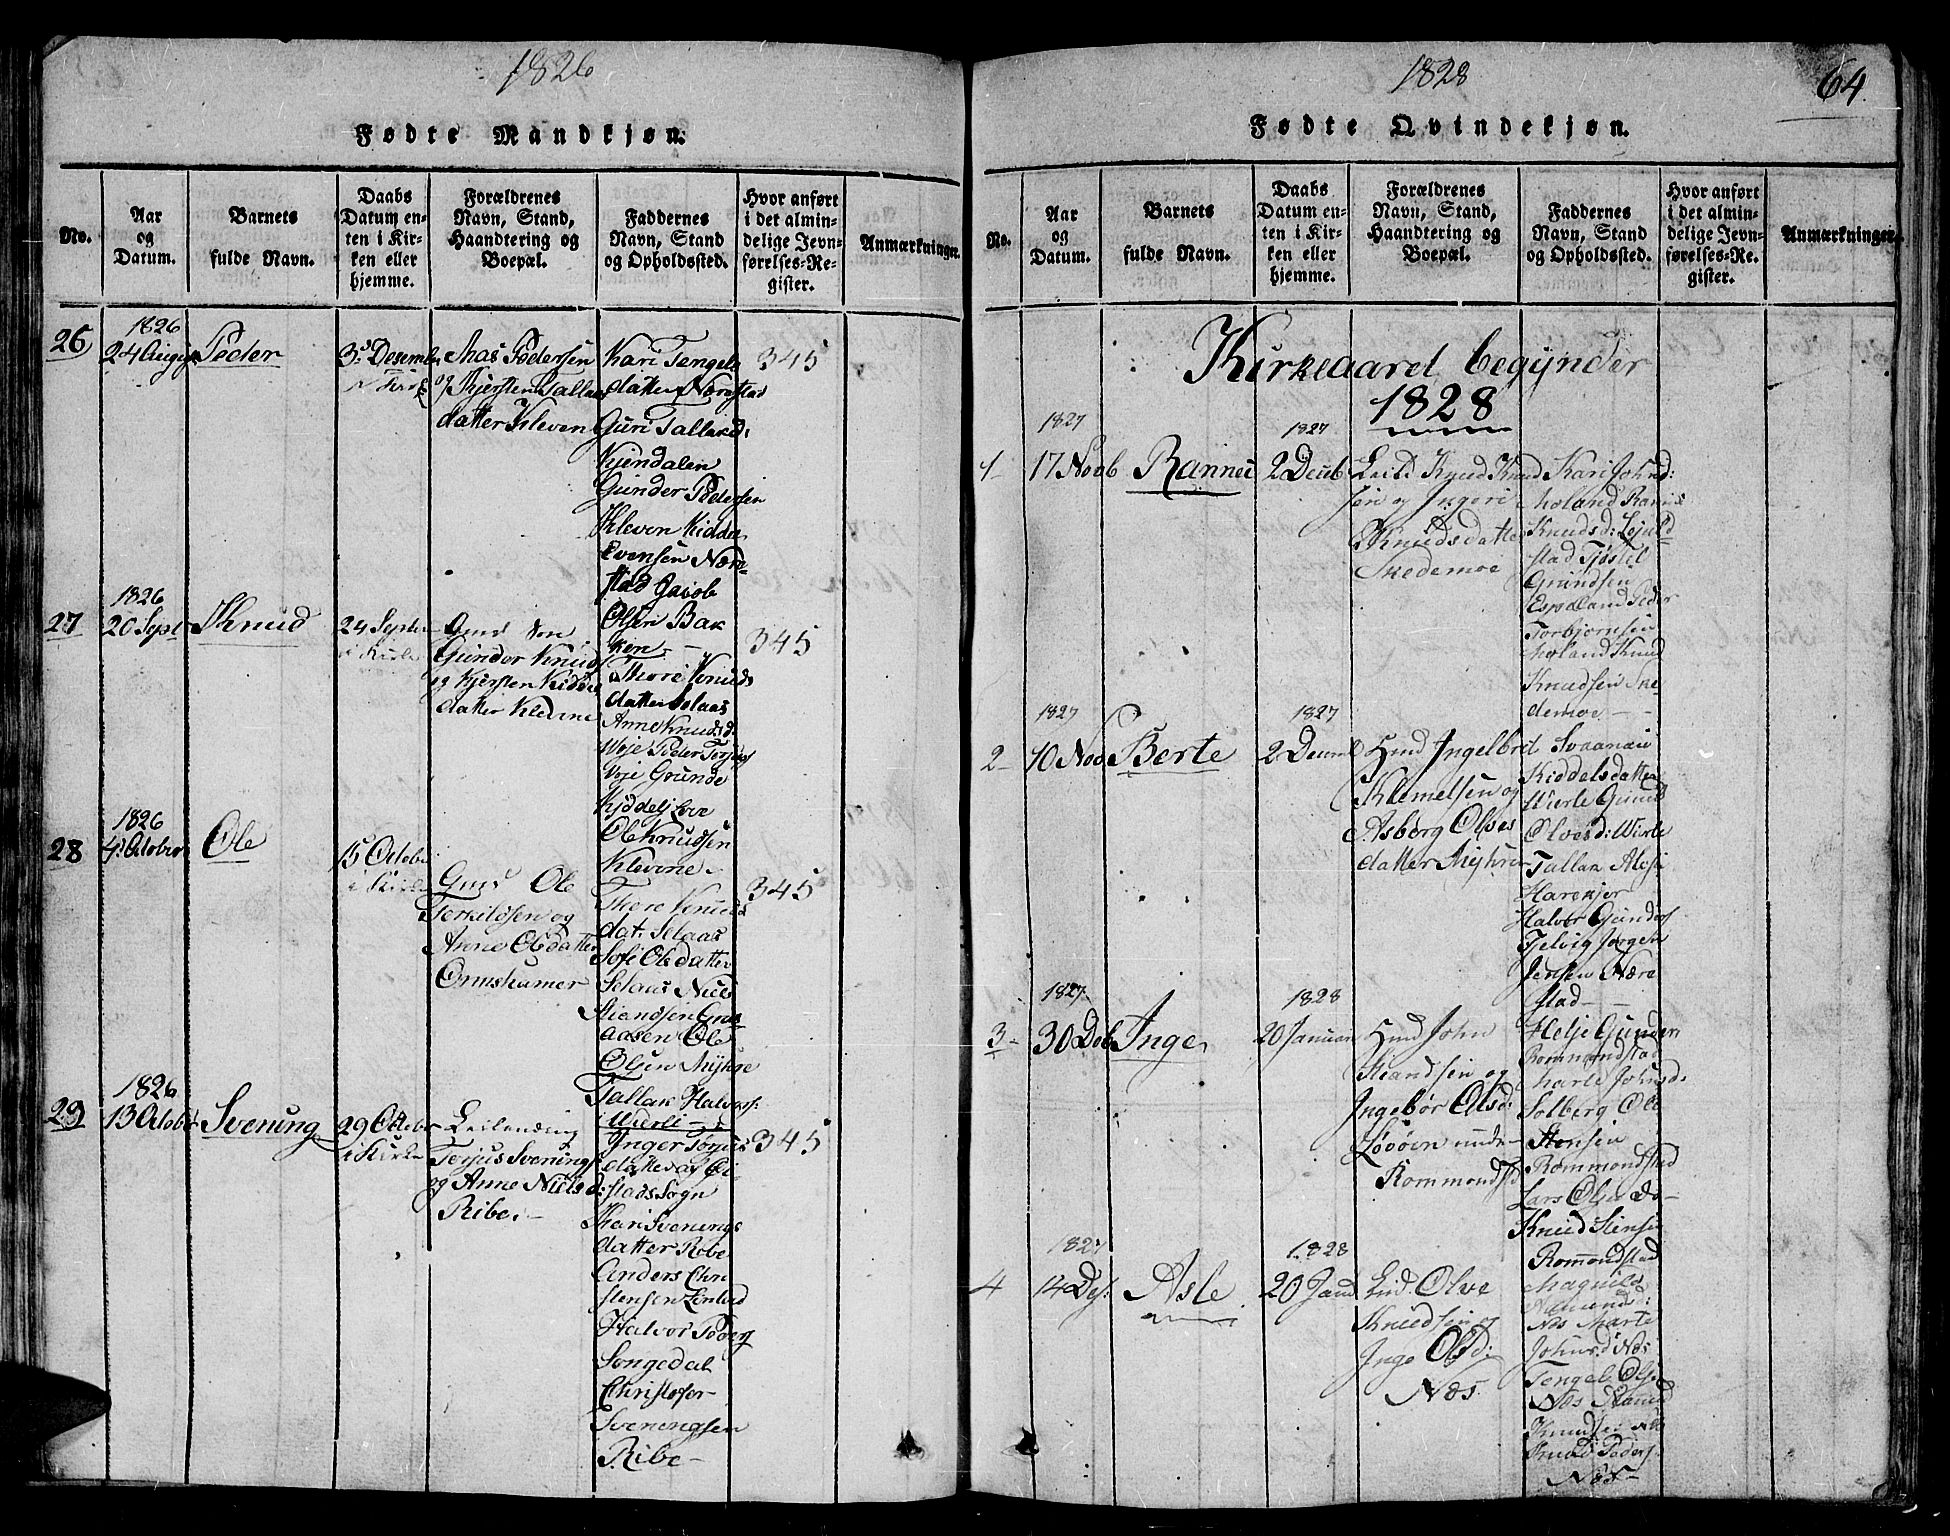 1826
Fødte Mandkjøn.
No.
Aar
og
Datum.
Barnets
fulde Navn.
Daabs
Datum en-
ten i Kir-
ken eller
hjemme.
Forældrenes
Navn, Stand,
Haandtering og
Boepæl.
Faddernes
Navn, Stand
og Opholdssted.
Hvor anført
i det almin-
delige Jevn-
førelses-Re-
gister.
Anmærkninger.
26
1826
24 August
Peder
3. Desemb
i Kirke
Aas Pedersen
og Kjersten Tallax
datter Kleven
Kari Tengels
datter Nærestad
Guri Tallaxd:
Kjendalen
Gunder Pedersen
Kleven Kiddel
Evensen Nære
stad Jacob
Olsen Bak
ken
345
27
1826
20 Sept
Knud
24 Septem
i Kirke
Gmd
Gunder Knuds
og Kjersten Kiddel
datter Klevene
Thore Knuds
datter Selaas
Anne Knudsd:
Woje Peder Torjus
Woje Grunde
Kiddels
Ole Knudsen
Klevene
345
28
1826
4. October
Ole
15 October
i Kirke
Gmd Ole
Terkildsen og
Anne Olsdatter
Ormshamer
Thore Knuds
dat. Selaas
Sofi Olsdatter
Selaas Niels
Stiandsen
aasen Ole
Olsen Myhre
Tallak Halvors:
Wierle
345
29
1826
13 October
Svening
29 October
i Kirke
Leilending
Torjus Svenings
og Anne Nielsd:
Ribe
Inger Torjus
datter af Gi
stads Sogn
Kari Svenings
datter Ribe
Anders Chri
stensen Lenlid
Halvor Peders
Songedal
Christofer
Sveningsen
Ribe
345
1828
64.
Fødte Qvindekjøn.
No.
Aar
og
Datum.
Barnets
fulde Navn.
Daabs
Datum en-
ten i Kir-
ken eller
hjemme.
Forældrenes
Navn, Stand,
Haandtering og
Boepæl.
Faddernes
Navn, Stand
og Opholdssted.
Hvor anført
i det almin-
delige Jevn-
førelses-Re-
gister.
Anmærkninger.
Kirkeaared begynder
1828
1
1827
17 Novb
Rannei
1827
2 Decb
Leild Knud Knud
sen og Ingeri
Knudsdatter
Skedemoe
Kari Johnd:
Moland Rannie
Knudsd:
stad Tjøstel
Grundsen
Espeland Peder
Torbjornsen
Moland Knud
Knudsen Ske
demoe
2
1827
10 Nov
Berte
1827
2 Decemb
Hmd Ingelbret
Klemetsen og
Asborg Olves
datter Myhren
Svaanau
Kiddelsdatter
Wierle Gunild
Olvesd: Wierle
Tallak
Harkjer
Halvor Gunders
Tjelvig Jørgen
Jensen Nære
stad
3
1827
30 Deb
Inge
1828
20 Januar
Hmd John
Steandsen og
Ingebor Olsd:
Løvøen under
Rommonds
Helje Gunders
Rommondstad
Marte Johnsd:
Solberg Ole
Stensen
Rommondstad
Lars Olsen do
Knud Stensen
Romondstad
4
1827
14 Des.
Asle
1828
20 Janu
Lid. Olve
Knudsen og
Inge Olsd:
Næs
Magnild
Amund:
Næs Marte
Johnsd Næs
Tengel Ols
Næs Amund
Knudsen Næs
Knud Peders
Næs